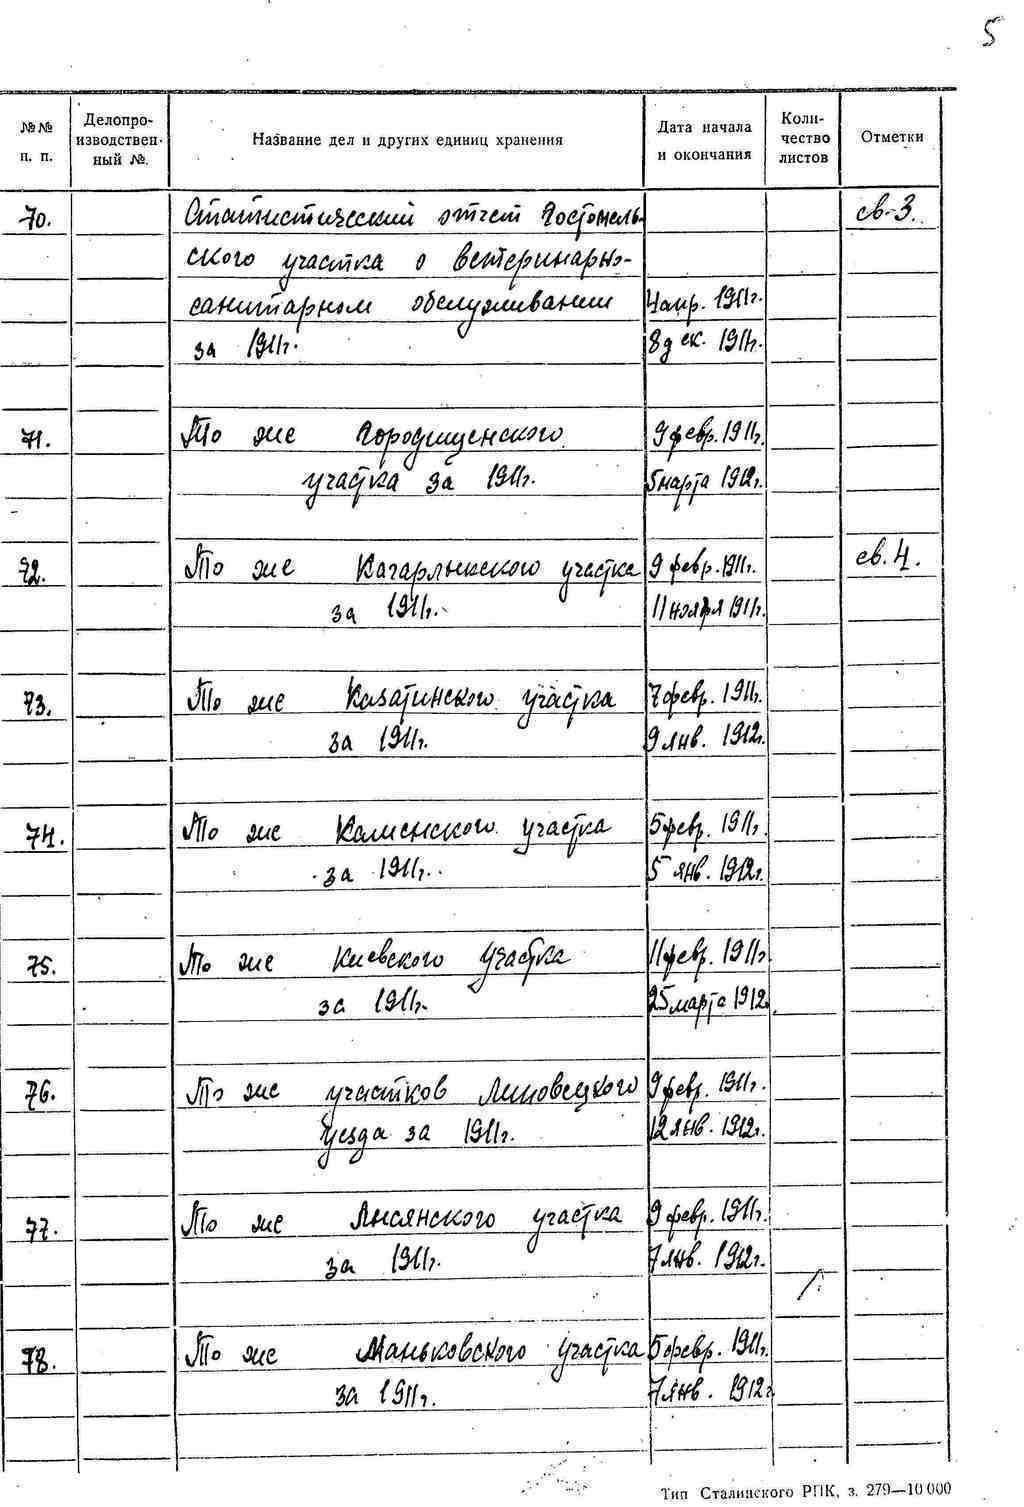 5
№№ п. п.
Делопро-
изводствен-
ный №.
Название дел и других единиц хранения
Дата начала
и окончания
Коли-
чество
листов
Отметки
70. Статистический отчет Гостомель- св-3.
ского участка о ветеринарно-
санитарном обслуживании 4 апр. 1911г.
за 1911г. 8 дек. 1911г.
71. То же Городищенского 9 февр. 1911г.
участка за 1911г. 5 марта 1912г.
72. То же Кагарлыкского участка 9 февр. 1911г. св. 4.
за 1911г. 11 ноября 1911г.
73. То же Казатинского участка 7 февр. 1911г.
за 1911г. 9 янв. 1912г.
74. То же Каменского участка 5 февр. 1911г.
за 1911г. 5 янв. 1912г.
75. То же Киевского участка 11 февр. 1911г.
за 1911г. 25 марта 1912
76. То же участков Липовецкого 9 февр. 1911г.
уезда за 1911г. 12 янв. 1912г.
77. То же Лысянского участка 9 февр. 1911г.
за 1911г. 7 янв. 1912г.
78. То же Маньковского участка 5 февр. 1911г.
за 1911г. 7 янв. 1912г
Тип Сталинского РПК, з. 279—10 000